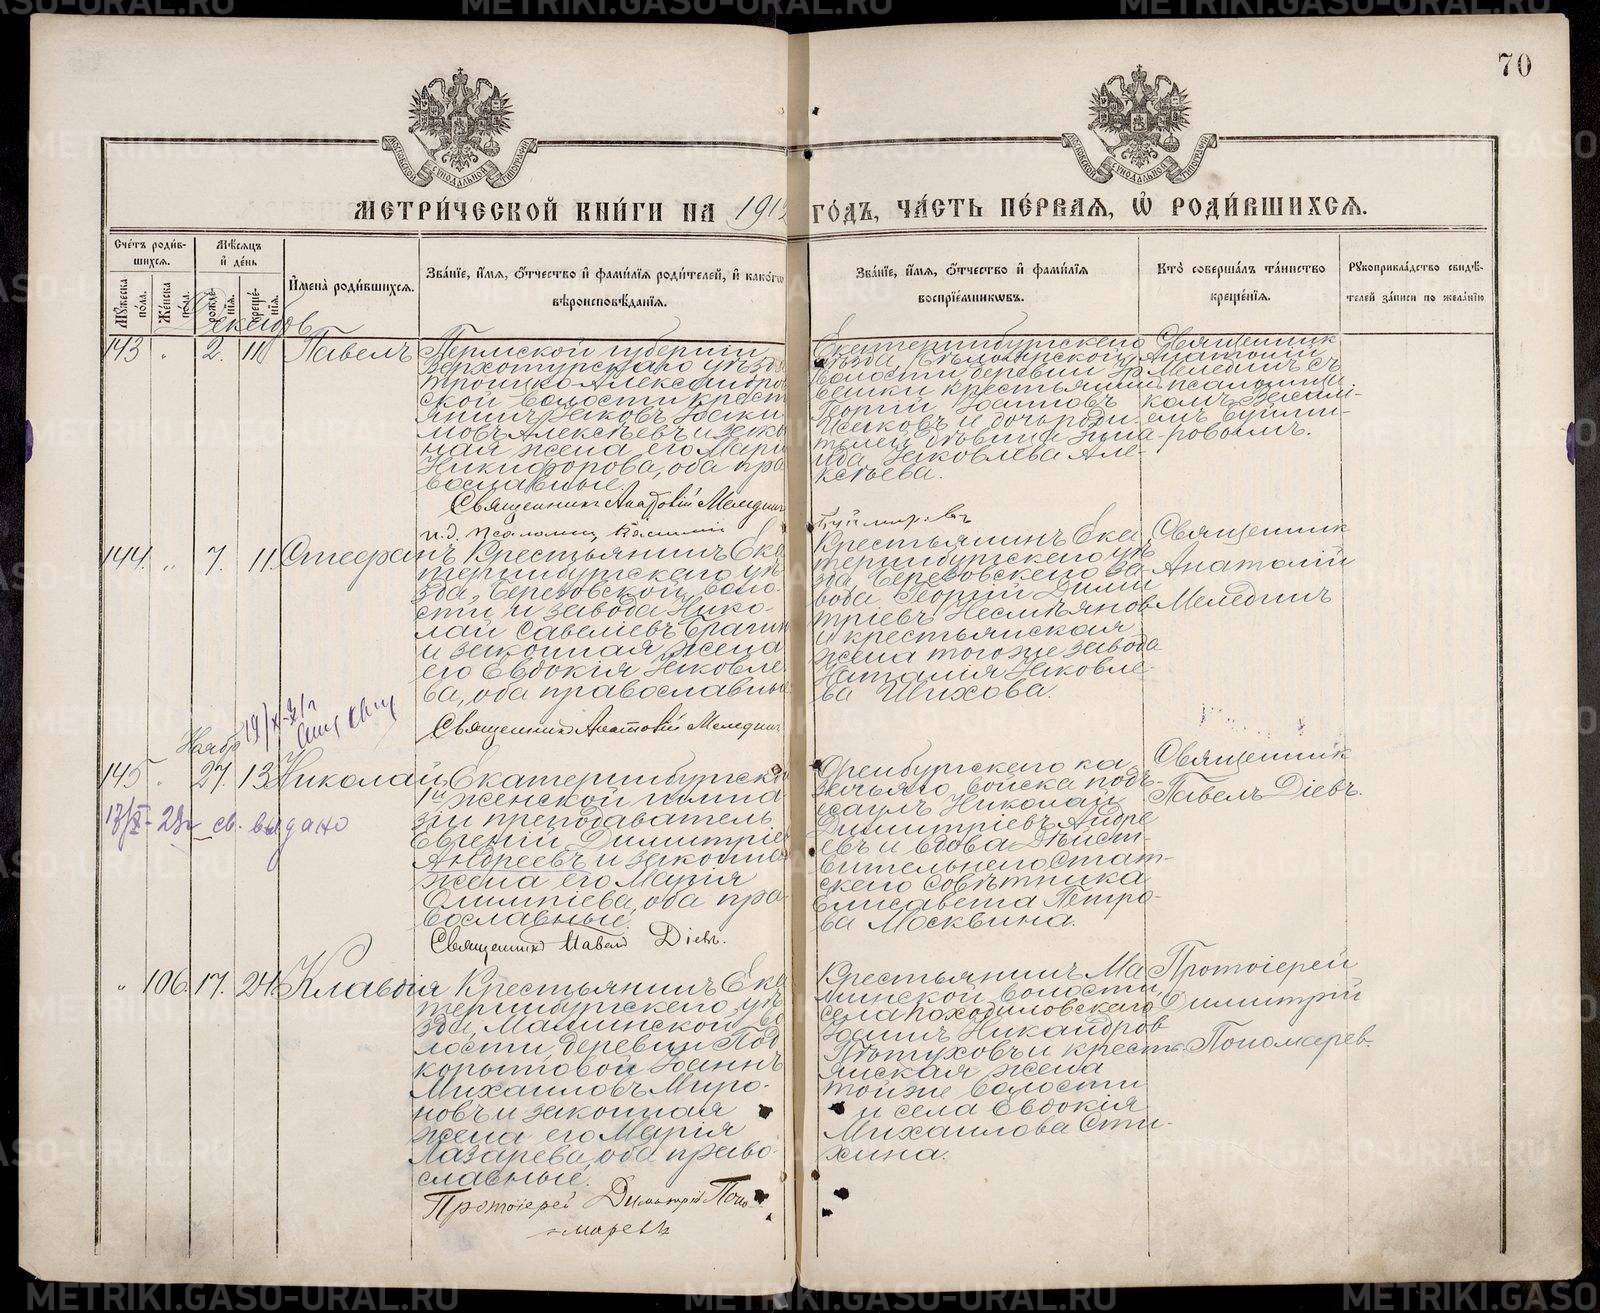 70
МОСКОВСКОЙ СѴНОДАЛЬНОЙ ТИПОГРАФІИ
МОСКОВСКОЙ СѴНОДАЛЬНОЙ ТИПОГРАФІИ
МЕТРИ́ЧЕСКОЙ КНИ́ГИ НА 191 ГО́ДЪ, ЧА́СТЬ ПЕ́РВАЯ, Ѡ҆ РОДИ́ВШИХСЯ.
Сче́тъ роди́в-
шихся.
Мꙋ́жеска по́ла.
Же́нска по́ла.
Мѣ́сяцъ
и҆ де́нь
рожде́-нїя.
креще́-нїя.
И҆мена̀ роди́вшихся.
Зва́нїе, и҆́мя, ѻ҆́тчество и҆ фами́лїя роди́телей, и҆ како́гѡ
вѣроисповѣ́данїя.
Зва́нїе, и҆́мя, ѻ҆́тчество и҆ фами́лїя
воспрїе́мникѡвъ.
Кто̀ соверша́лъ та́инство
креще́нїя.
Рꙋкоприкла́дство свидѣ́-
телей за́писи по жела́нїю
Декабрь
143 " 2. 11. Павелъ
Пермской губерніи
Верхотурскаго уѣзда
Троицко Александров
ской волости крест
янинъ Іаковъ Іоаки
мовъ Алексѣевъ и закон
ная жена его Марія
Никифорова, оба пра
вославные.
Священникъ Анатолій Меледин
и.д. псаломщ Василій
Екатеринбургскаго
уѣзда, Бѣлоярской
волости деревни
крестьянинъ
Георгій Іоанновъ
Исаковъ и дочь роди-
телей дѣвица Зина-
ида Іаковлева Але-
ксѣева.
Буймировъ
Священникъ
Анатолій
Меледимъ съ
псаломщи
комъ Васілі-
емъ Буйми-
ровымъ.
144. " 7. 11. Стефанъ
Крестьянинъ Ека
теринбургскаго уѣ
зда, Березовской воло-
сти и завода Нико-
лай Савеліевъ Брагин
и законная жена
его Евдокія Іаковле
ва, оба православные
Священникъ Анатолій Меледин
Крестьянинъ Ека
теринбургскаго уѣ
зда, Березовскаго за-
вода Георгій Дими
тріевъ Несмѣянов
и крестьянская
жена того же завода
Наталія Іаковле-
ва Шихова.
Священникъ
Анатолій
Мелединъ
Ноябр
145 " 27. 13. Николай
17/X - 29г св. выдано
Екатеринбургской
1й женской гимна
зіи преподаватель
Евгеній Димитріев
Андреевъ и законная
жена его Марія
Олимпіева, оба пра-
вославные.
Священникъ Павелъ Діевъ.
Оренбургскаго ка
зачьяго войска подъ-
есаулъ Николай
Димитріевъ Андре
евъ и вдова Дѣйст-
вительнаго Стат-
скаго Совѣтника
Елисавета Петро-
ва Москвина.
Священникъ
Павелъ Діевъ.
" 106. 17. 24. Клавдія
Крестьянинъ Ека
теринбургскаго уѣ
зда, Маминской во
лости, деревни Под
корытовой Іоаннъ
Михаиловъ Миро-
новъ и законная
жена его Марія
Лазарева, оба право-
славные.
Протоіерей Димитрій Поно
маревъ
Крестьянинъ Ма
минской волости,
села Походиловскаго
Іоаннъ Никандров
Пѣтуховъ и кресть-
янская жена
той же волости
и села Евдокія
Михаилова Сти-
хина.
Протоіерей
Димитрій
Пономарев.